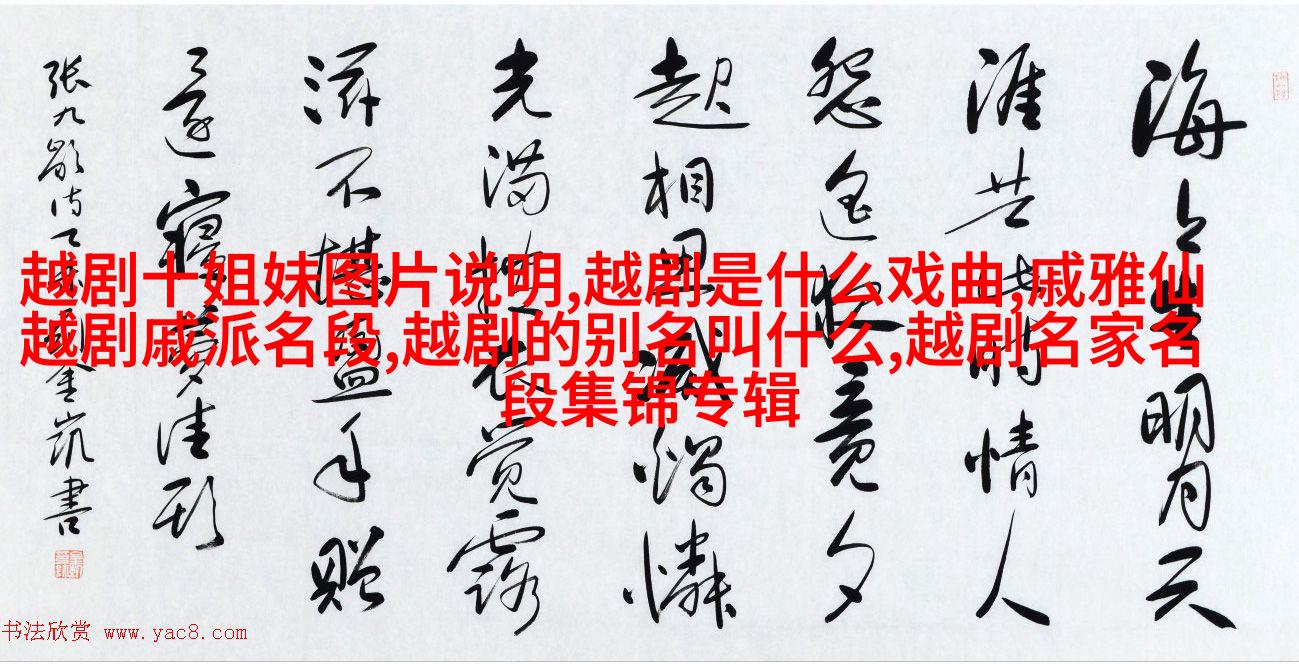 越剧十姐妹图片说明,越剧是什么戏曲,戚雅仙
越剧戚派名段,越剧的别名叫什么,越剧名家名
段集锦专辑
海上生明月天
涯共此时情人
怨遥夜竟夕
起相思灭烛怜
光满披衣觉露
滋不堪盈手赠
还寝梦佳期
张九龄诗
书法欣赏 www.yac8.com